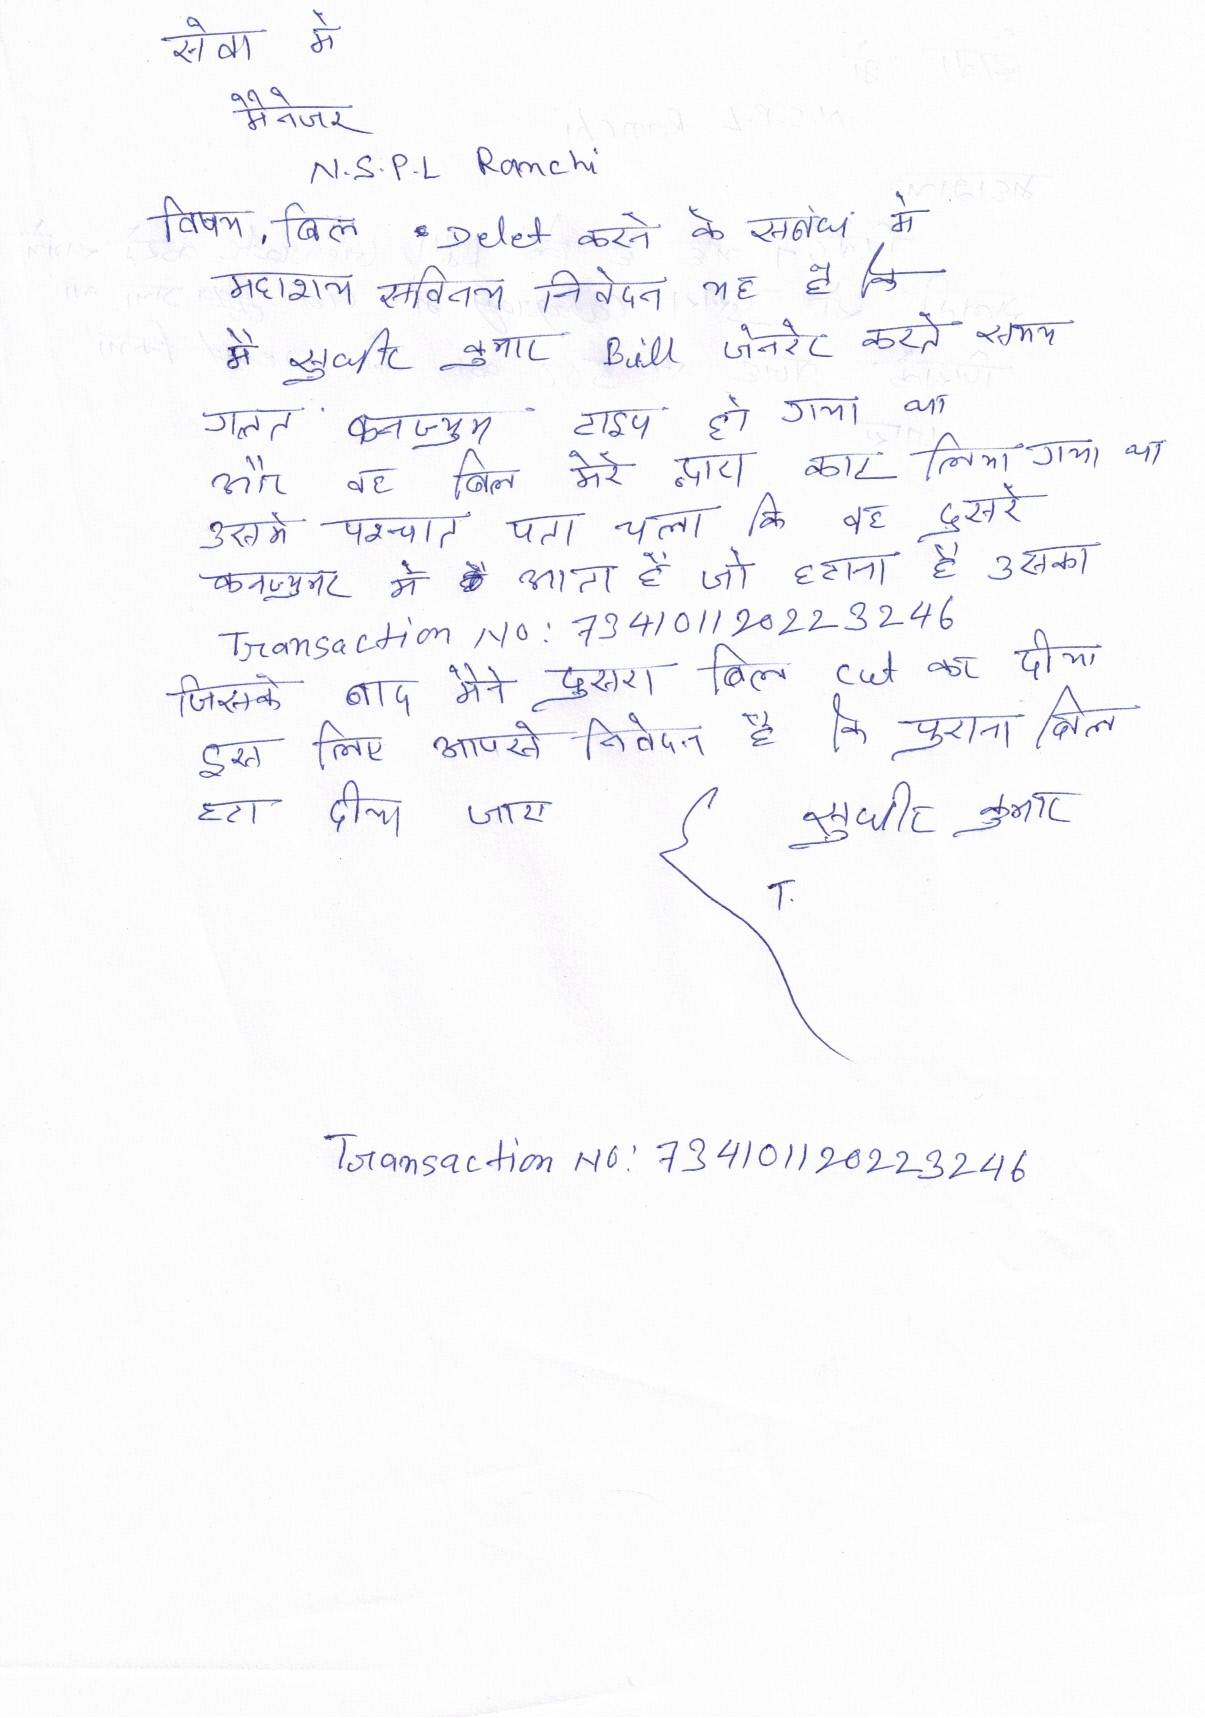 सेवा में
मैनेजर
N.S.P.L Ranchi
विषय, बिल Delet करने के सबंध में
महाशय सविनय निवेदन यह है कि
मैं सुधीर कुमार Bill जेनरेट करते समय
गलत कनज्युम टाइप हो गया था
और वह बिल मेरे द्वारा काट लिया गया था
उसमे पश्चात पता चला कि वह दुसरे
कनज्युमर में आता है जो हटाना है उसका
Transaction No: 73410112022 3246
जिसके बाद मैने दुसरा बिल cut कर दीया
इस लिए आपसे निवेदन है कि पुराना बिल
हटा दीया जाए
सुधीर कुमार
T.
Transaction No: 734101120223246